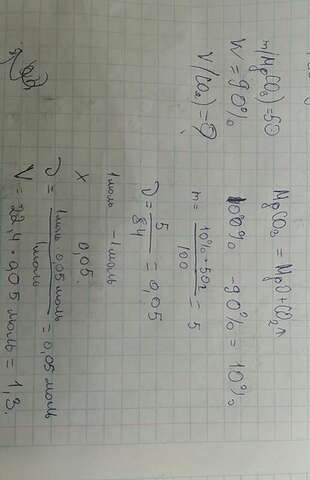 m(MgCO₃)=50
W=90%
V(CO₂)=?
MgCO₃ = MgO+CO₂↑
100% -90% = 10%
m= 10%·50г / 100 = 5
ν= 5 / 84 = 0,05
1моль -1моль
x 0,05.
ν= 1моль·0,05моль / 1моль = 0,05моль
V=22,4·0,05моль = 1,3.